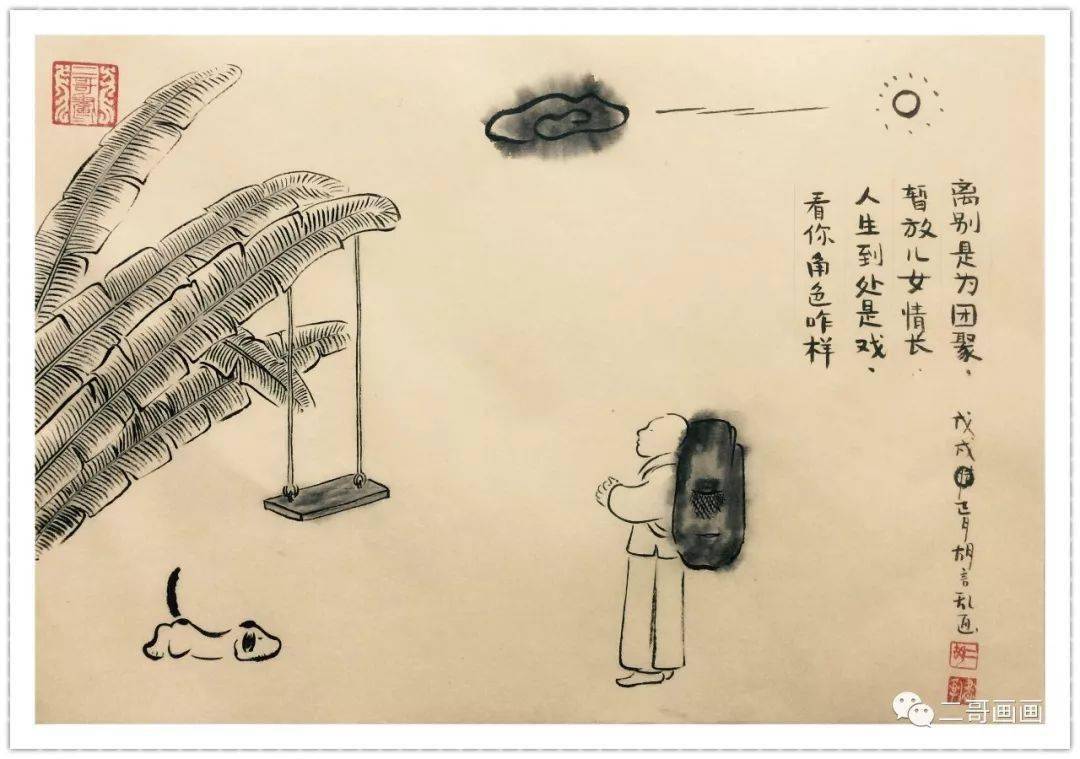 离别是为团聚、
暂放儿女情长.
人生到处是戏、
看你角色咋样
戊戌正月胡言乱画
二哥画画